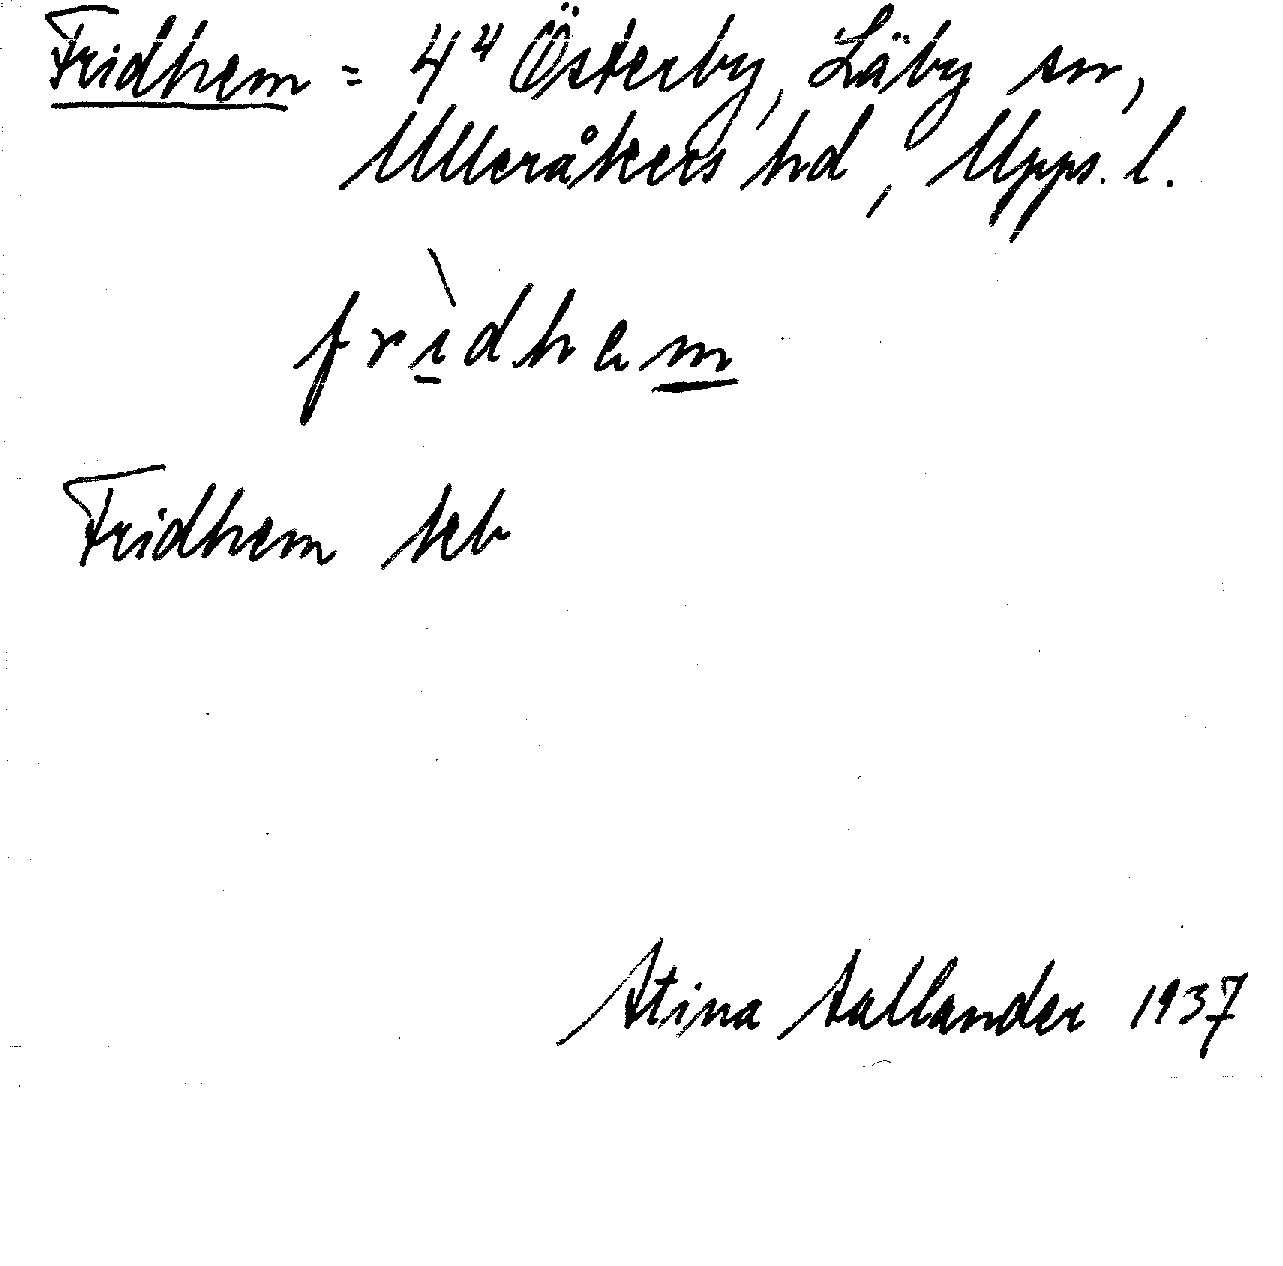 Fridhem = 4⁴ Österby, Läby sn,
Ulleråkers hd, Upps. l.
frìdhem
Fridhem keb
Stina Sallander 1937